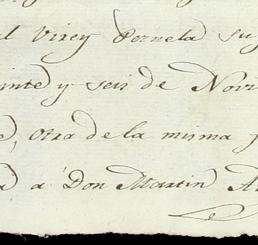 el Virey Pezuela su
einte y seis de Nov
, otra de la misma f
a Don Martin A